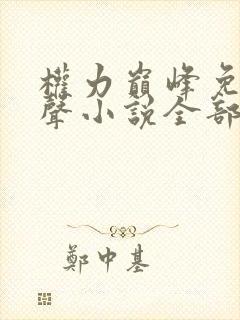 權力巔峰免
聲小說全部
鄭中基